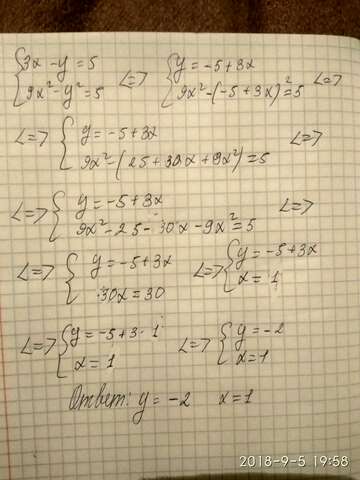 {3x - y = 5 <=> {y = -5 + 3x <=>
{9x² - y² = 5 {9x² - (-5 + 3x)² = 5
<=> {y = -5 + 3x <=>
{9x² - (25 + 30x + 9x²) = 5
<=> {y = -5 + 3x <=>
{9x² - 25 - 30x - 9x² = 5
<=> {y = -5 + 3x <=> {y = -5 + 3x
{30x = 30 {x = 1
<=> {y = -5 + 3·1 <=> {y = -2
{x = 1 {x = 1
Ответ: y = -2 x = 1
2018-9-5 19:58